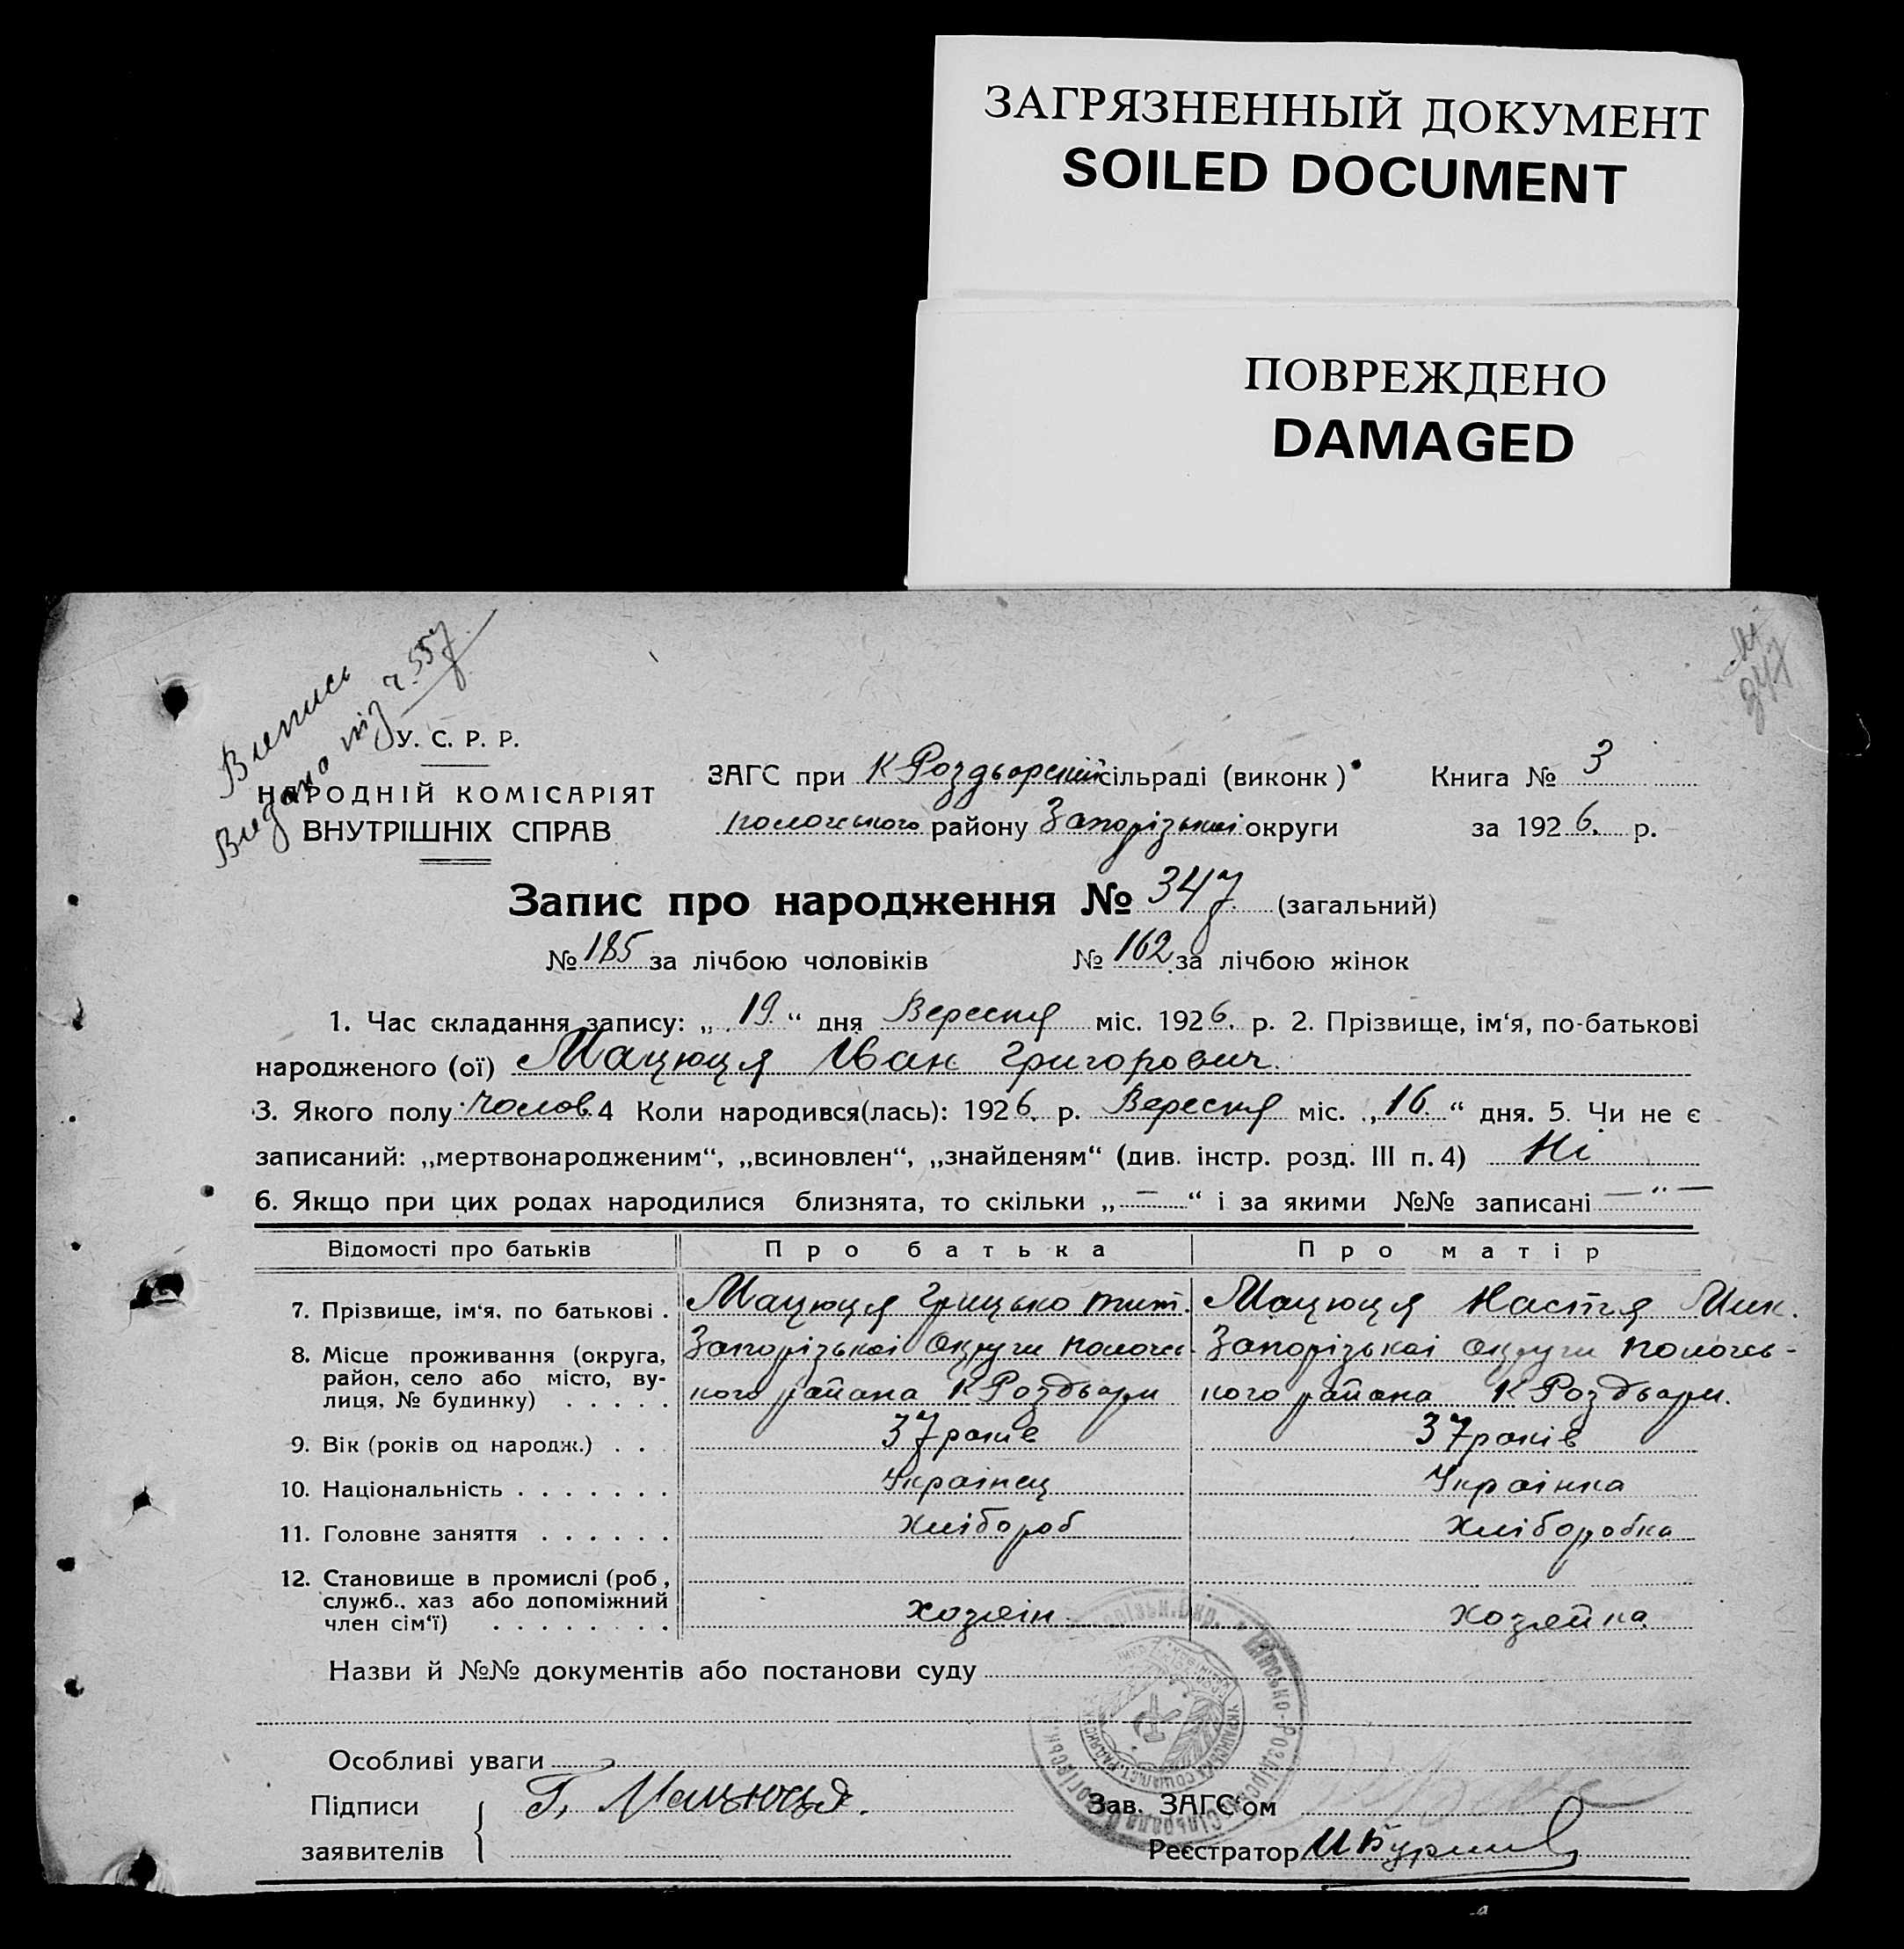 ЗАГРЯЗНЕННЫЙ ДОКУМЕНТ
SOILED DOCUMENT
ПОВРЕЖДЕНО
DAMAGED
Випись
Видано під ч. 557
347
У. С. Р. Р.
НАРОДНІЙ КОМІСАРІЯТ
ВНУТРІШНІХ СПРАВ
ЗАГС при К Роздьорській сільраді (виконк) Книга № 3
пологського району Запорізької округи за 1926. р.
Запис про народження № 347 (загальний)
№ 185 за лічбою чоловіків № 162 за лічбою жінок
1. Час складання запису: „ 19 “ дня Вересня міс. 1926. р. 2. Прізвище, ім‘я, по-батькові
народженого (ої) Мацюця Іван Григорович.
3. Якого полу чолов. 4 Коли народився(лась): 1926 р. Вересня міс. „ 16 “ дня. 5. Чи не є
записаний: „мертвонародженим“, „всиновлен“, „знайденям“ (див. інстр. розд. III п. 4) Ні
6. Якщо при цих родах народилися близнята, то скільки „ — “ і за якими №№ записані — " —
Відомості про батьків Про батька Про матір
7. Прізвище, ім‘я, по батькові . Мацюця Грицько тит. Мацюця Настя Мик.
8. Місце проживання (округа, Запорізькоі Округи пологсь- Запорізькоі округи пологсь-
район, село або місто, ву- кого района К Роздьори кого района К Роздьори.
лиця, № будинку) . . . . .
9. Вік (років од народж.) . . . 37 років 37 років
10. Національність . . . . . . . Украінец Украінка
11. Головне заняття . . . . . . Хлібороб Хліборобка
12. Становище в промислі (роб,
служб., хаз або допоміжний хозяін хозяйка
член сім‘ї) . . . . . . . .
Назви й №№ документів або постанови суду
Особливі уваги
Підписи Г. Мацюця. Зав. ЗАГС‘ом
заявителів Реєстратор